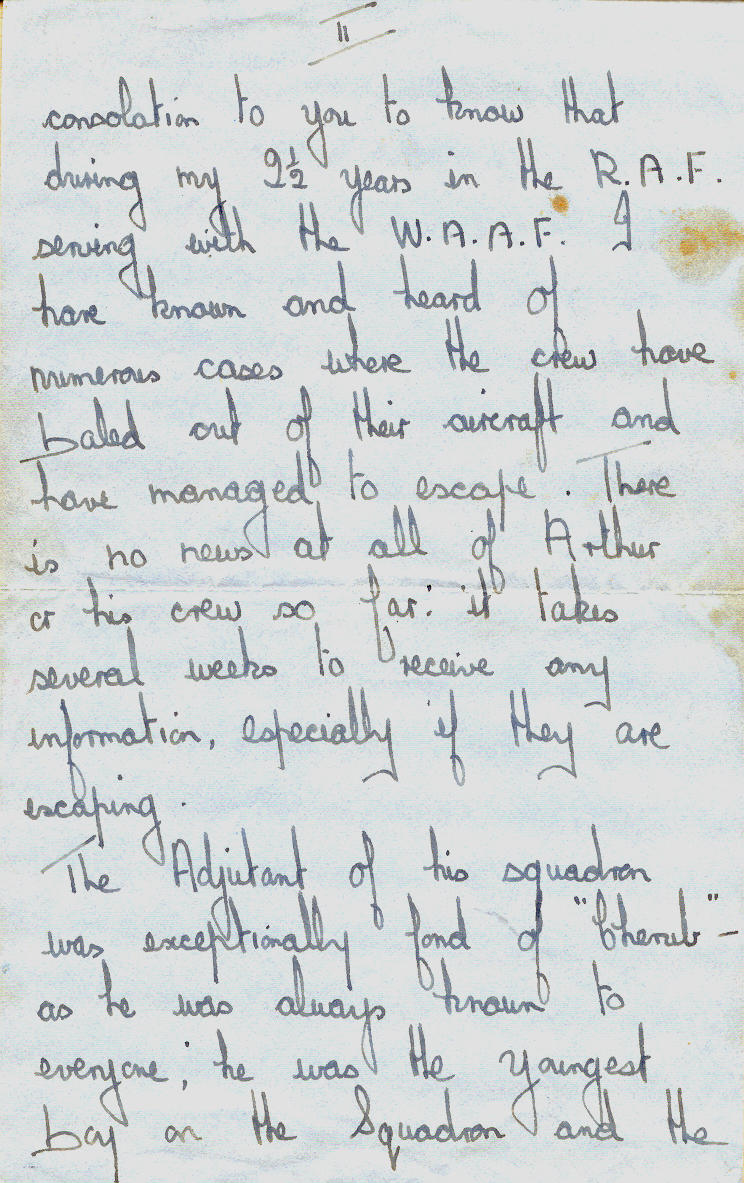 II
consolation to you to know that
during my 2½ years in the R.A.F.
serving with the W.A.A.F. I
have known and heard of
numerous cases where the crew have
baled out of their aircraft and
have managed to escape. There
is no news at all of Arthur
or his crew so far: it takes
several weeks to receive any
information, especially if they are
escaping.
The Adjutant of his squadron
was exceptionally fond of "Cherub" -
as he was always known to
everyone; he was the youngest
boy on the Squadron and the